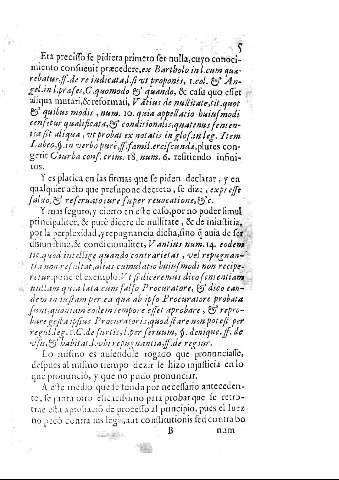 5
Era precisso se pidiera primero ser nulla, cuyo conoci-
miento consueuit præcedere, ex Bartholo in l. cum quæ-
rebatur, ff. de re iudicata, l. si vt proponis, 1. col. & An-
gel. in l. præses, C. quomodo & quando, & casu quo esset
aliqua mutari, & reformari, Vātius de nullitate, tit. quot
& quibus modis, num. 10. quia appellatio huiusmodi
censetur qualificata, & conditionalis, quatenus senten-
tia sit aliqua, vt probat ex notatis in glos. in leg. Item
Labeo, §. in verbo purè, ff. famil. erciscunda, plures con-
gerit Giurba conf. crim. 18. num. 6. resistiendo infini-
tos.
Y es platica en las firmas que se piden declarar, y en
qualquier acto que presupone decreto, se dize, expresse
saluo, & reseruatoiure super reuocatione, &c.
Y mas seguro, y cierto en este caso, por no poder simul
principaliter, & purè dicere de nullitate, & de iniustitia,
por la perplexidad, y repugnancia dicha, sino q̃ auia de ser
disiunctiue, & condicionaliter, Vantius num. 14. eodem
tit. quod intellige quando contrarietas, vel repugnan-
tia non resultat, alias cumulatio huiusmodi non recipe-
retur, pone el exemplo. Vt si diceremus dico sententiam
nullam quia lata cum falso Procuratore, & dico ean-
dem in instam per ea qua ab ipso Procuratore probata
sunt, quoniam eodem tempore esset aprobare, & repro-
bare gesta ipsius Procuratoris: quod stare non potest per
regul. leg. 1. C. de furtis, l. per seruum, §. denique, ff. de
vsu, & habitat. l. vbi repugnantia, ff. de reg. iur.
Lo mismo es auiendole rogado que pronunciasse,
despues al mismo tiempo dezir se hizo injusticia en lo
que pronunciò, y que no pudo pronunciar.
A este medio que se funda por necessario anteceden-
te, se junta otro eficacissimo para probar que se retro-
trae esta aprobació de processo al principio, pues el Iuez
no pecò contra ius leg. aut constitutionis sed contra bo
B
num